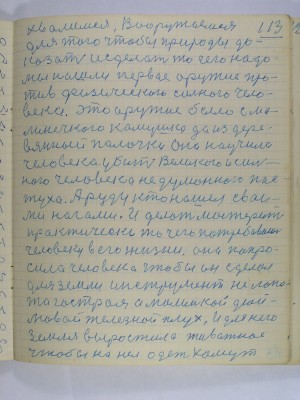 хвалимся, Вооружаемся 113
для того чтобы природы до-
казать и сделать то чего надо
мы нашли первое оружие про-
тив физического силного чело-
века. Это оружие было с ма-
линечкого камушка да из дере-
вянный палочки Она научила
человека убить Великого и сил-
ного человека не думонного пас-
туха. А руду кто нашел сваи-
ми нагами. И делат
практическ то чего потребавал
человеку в его жизни, она попро-
сила человека чтобы он сделал
для земли инструмент не лопа-
та гострая а машинкой дюй-
мовай железной плух, И для него
Земля выростила животное
чтобы на нел одет Хамут